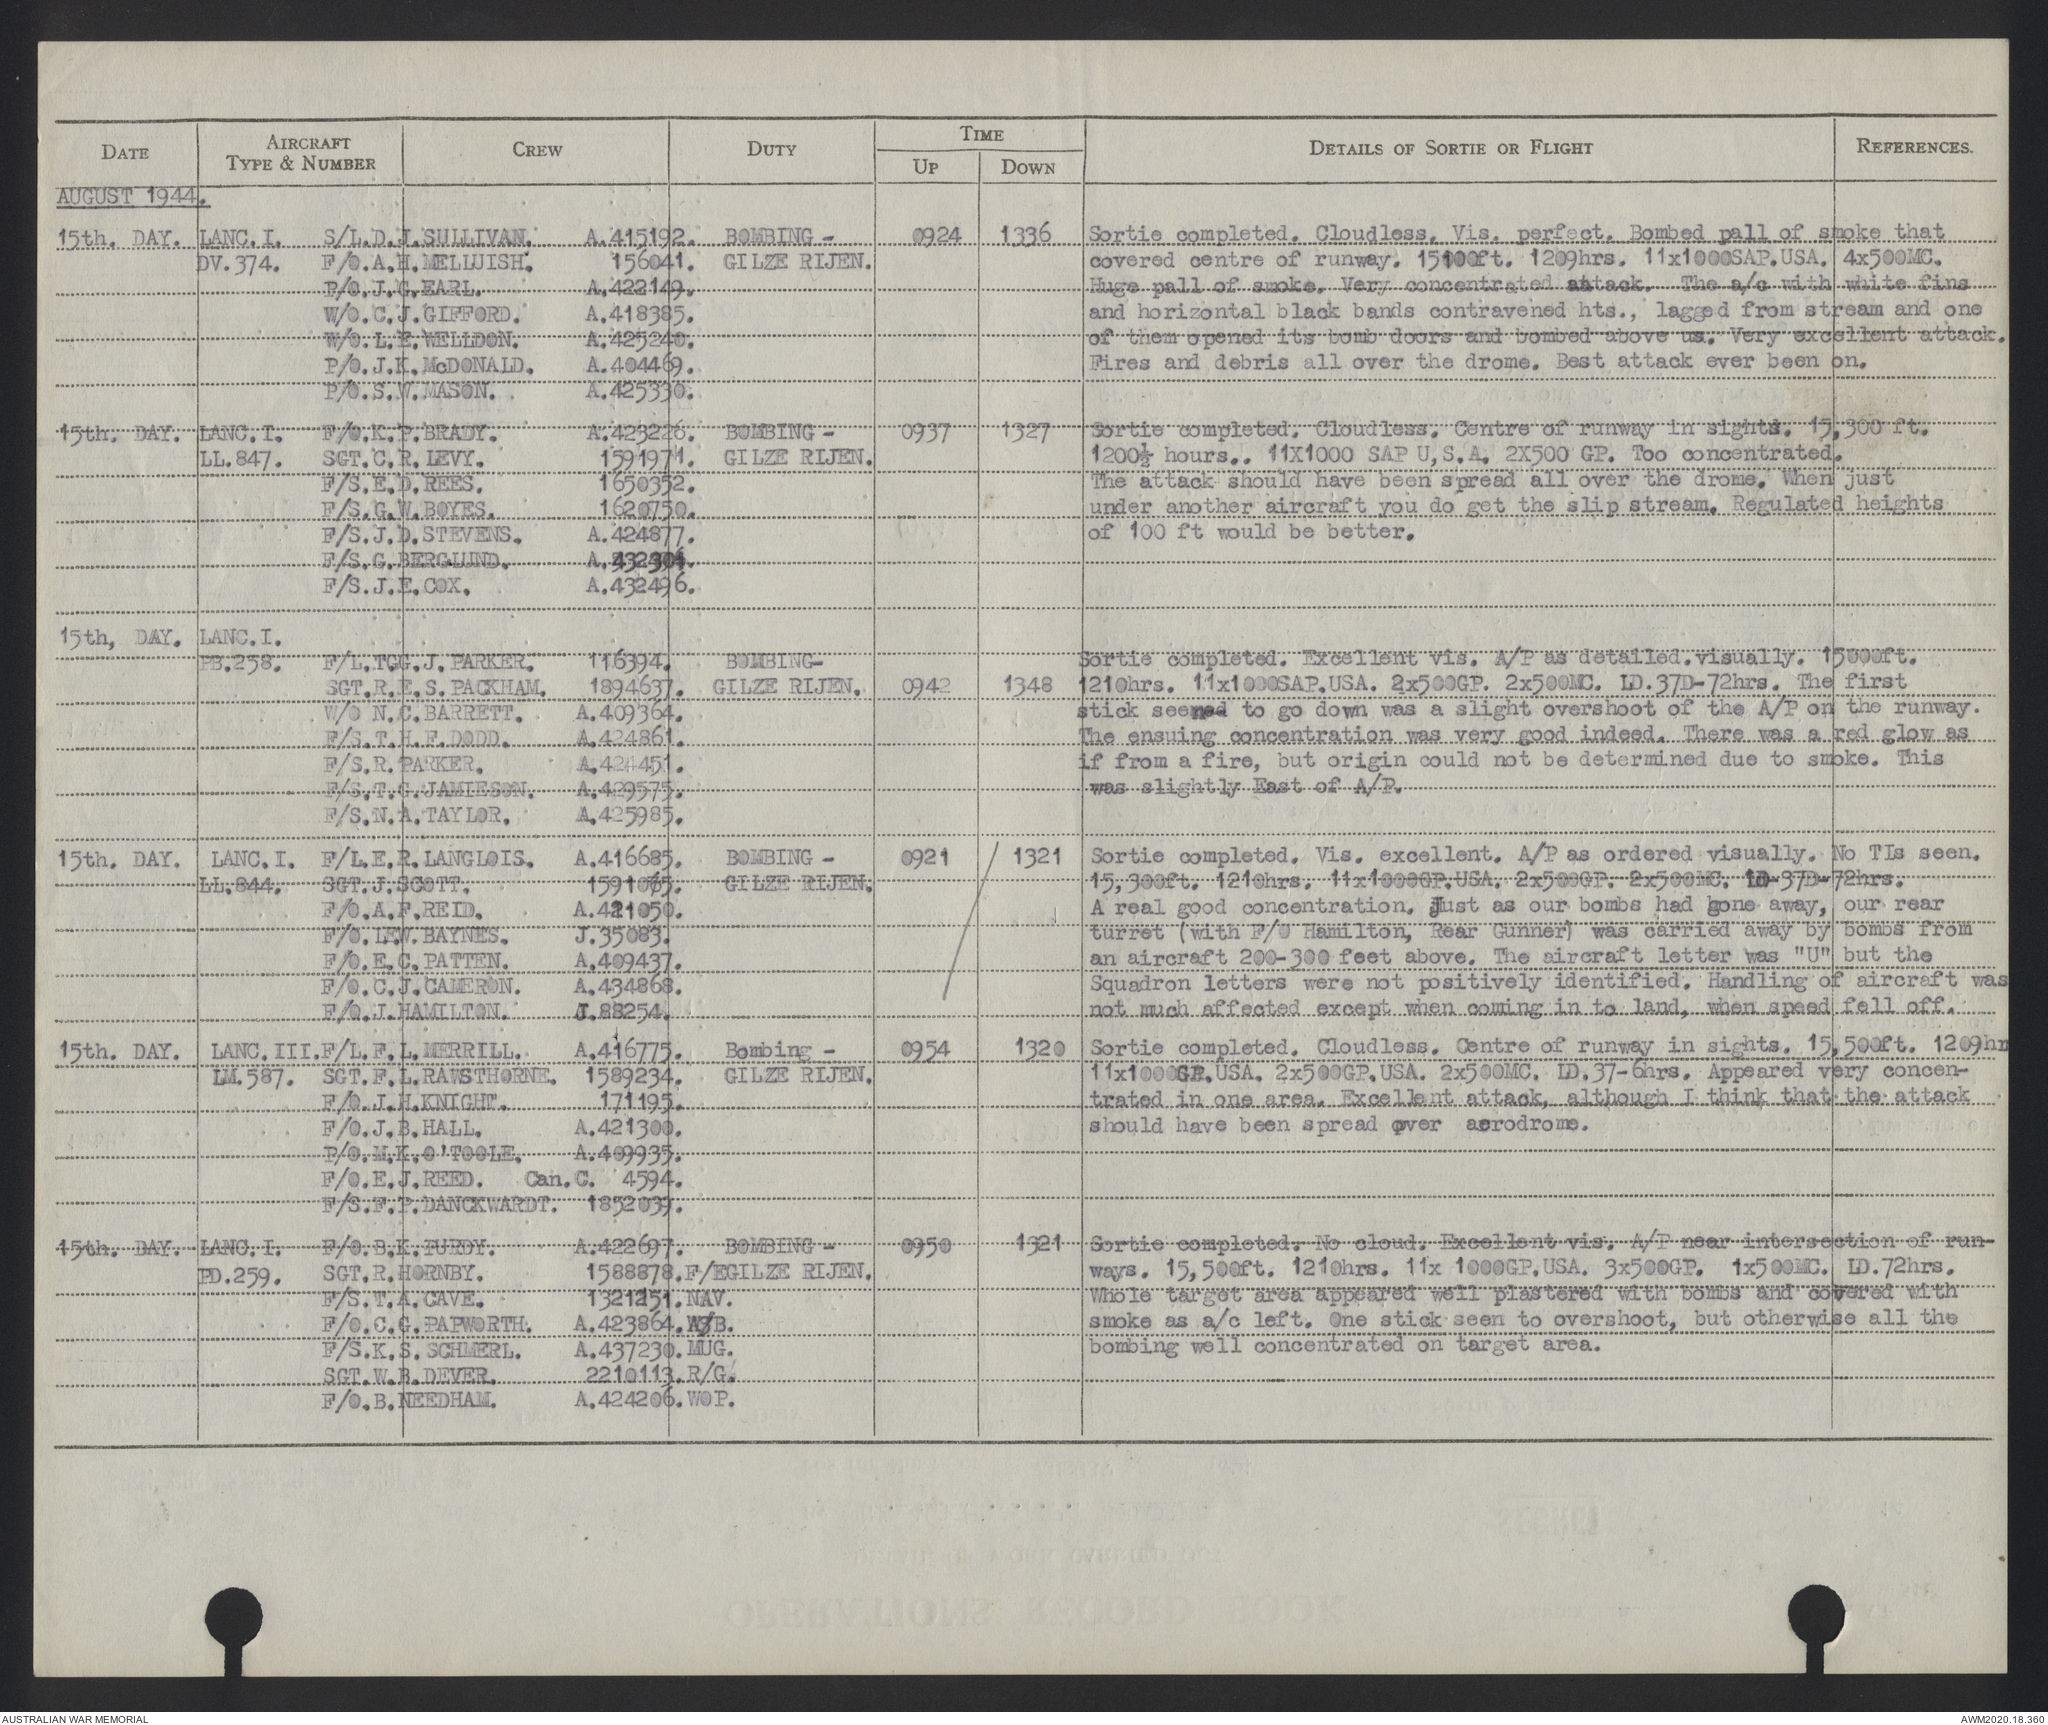 DATE AIRCRAFT TYPE & NUMBER CREW DUTY TIME UP DOWN DETAILS OF SORTIE OR FLIGHT REFERENCES.
AUGUST 1944.
15th. DAY. LANC.I. S/L.D.J.SULLIVAN. A.415192. BOMBING - 0924 1336 Sortie completed. Cloudless. Vis. perfect. Bombed pall of smoke that
DV.374. F/O.A.H.MELLUISH. 156041. GILZE RIJEN. covered centre of runway. 15100ft. 1209hrs. 11x1000SAP.USA. 4x500MC.
P/O.J.G.EARL. A.422149. Huge pall of smoke. Very concentrated attack. The a/c with white fins
W/O.C.J.GIFFORD. A.418385. and horizontal black bands contravened hts., lagged from stream and one
W/O.L.E.WELLDON. A.425240. of them opened its bomb doors and bombed above us. Very excellent attack.
P/O.J.K.McDONALD. A.404469. Fires and debris all over the drome. Best attack ever been on.
P/O.S.W.MASON. A.425330.
15th. DAY. LANC.I. F/O.K.P.BRADY. A.423226. BOMBING - 0937 1327 Sortie completed. Cloudless. Centre of runway in sights. 15,300 ft.
LL.847. SGT.C.R.LEVY. 1591971. GILZE RIJEN. 1200½ hours.. 11X1000 SAP U,S.A. 2X500 GP. Too concentrated.
F/S.E.D.REES. 1650352. The attack should have been spread all over the drome. When just
F/S.G.W.BOYES. 1620750. under another aircraft you do get the slip stream. Regulated heights
F/S.J.D.STEVENS. A.424877. of 100 ft would be better.
F/S.G.BERGLUND.
F/S.J.E.COX. A.432496.
15th, DAY. LANC.I.
PB.258. F/L.TGG.J.PARKER. 116394. BOMBING- Sortie completed. Excellent vis. A/P as detailed.visually. 15000ft.
SGT.R.E.S.PACKHAM. 1894637. GILZE RIJEN. 0942 1348 1210hrs. 11x1000SAP.USA. 2x500GP. 2x500MC. LD.37D-72hrs. The first
W/O N.C.BARRETT. A.409364. stick seemed to go down was a slight overshoot of the A/P on the runway.
F/S.T.H.F.DODD. A.424861. The ensuing concentration was very good indeed. There was a red glow as
F/S.R.PARKER. A.424451. if from a fire, but origin could not be determined due to smoke. This
F/S.T.G.JAMIESON. A.429575. was slightly East of A/P.
F/S.N.A.TAYLOR. A.425985.
15th. DAY. LANC.I. F/L.E.R.LANGLOIS. A.416685. BOMBING - 0921 1321 Sortie completed. Vis. excellent. A/P as ordered visually. No TIs seen.
LL.844. SGT.J.SCOTT. GILZE RIJEN. 15,300ft. 1210hrs. 11x1000GP.USA. 2x500GP. 2x500MC. LD-37D-72hrs.
F/O.A.F.REID. A.421050. A real good concentration. Just as our bombs had gone away, our rear
F/O.LEW.BAYNES. J.35083. turret (with F/O Hamilton, Rear Gunner) was carried away by bombs from
F/O.E.C.PATTEN. A.409437. an aircraft 200-300 feet above. The aircraft letter was "U" but the
F/O.C.J.CAMERON. A.434868. Squadron letters were not positively identified. Handling of aircraft was
F/O.J.HAMILTON. J.88254. not much affected except when coming in to land, when speed fell off.
15th. DAY. LANC.III. F/L.F.L.MERRILL. A.416775. Bombing - 0954 1320 Sortie completed. Cloudless. Centre of runway in sights. 15,500ft. 1209hr
LM.587. SGT.F.L.RAWSTHORNE. 1589234. GILZE RIJEN. 11x1000GP.USA. 2x500GP.USA. 2x500MC. LD.37-6hrs. Appeared very concen-
F/O.J.H.KNIGHT. 171195. trated in one area. Excellent attack, although I think that the attack
F/O.J.B.HALL. A.421300. should have been spread over aerodrome.
P/O.M.K.O'TOOLE. A.409935.
F/O.E.J.REED. Can.C. 4594.
F/S.F.P.DANCKWARDT. 1852039.
15th. DAY. LANC.I. F/O.B.K.PURDY. A.422697. BOMBING - 0950 1321 Sortie completed. No cloud. Excellent vis. A/P near intersection of run-
PD.259. SGT.R.HORNBY. 1588878.F/EGILZE RIJEN. ways. 15,500ft. 1210hrs. 11x 1000GP.USA. 3x500GP. 1x500MC. LD.72hrs.
F/S.T.A.CAVE. 1321251.NAV. Whole target area appeared well plastered with bombs and covered with
F/O.C.G.PAPWORTH. A.423864.A/B. smoke as a/c left. One stick seen to overshoot, but otherwise all the
F/S.K.S.SCHMERL. A.437230.MUG. bombing well concentrated on target area.
SGT.W.B.DEVER. 2210113.R/G.
F/O.B.NEEDHAM. A.424206.WOP.
AUSTRALIAN WAR MEMORIAL AWM2020.18.360